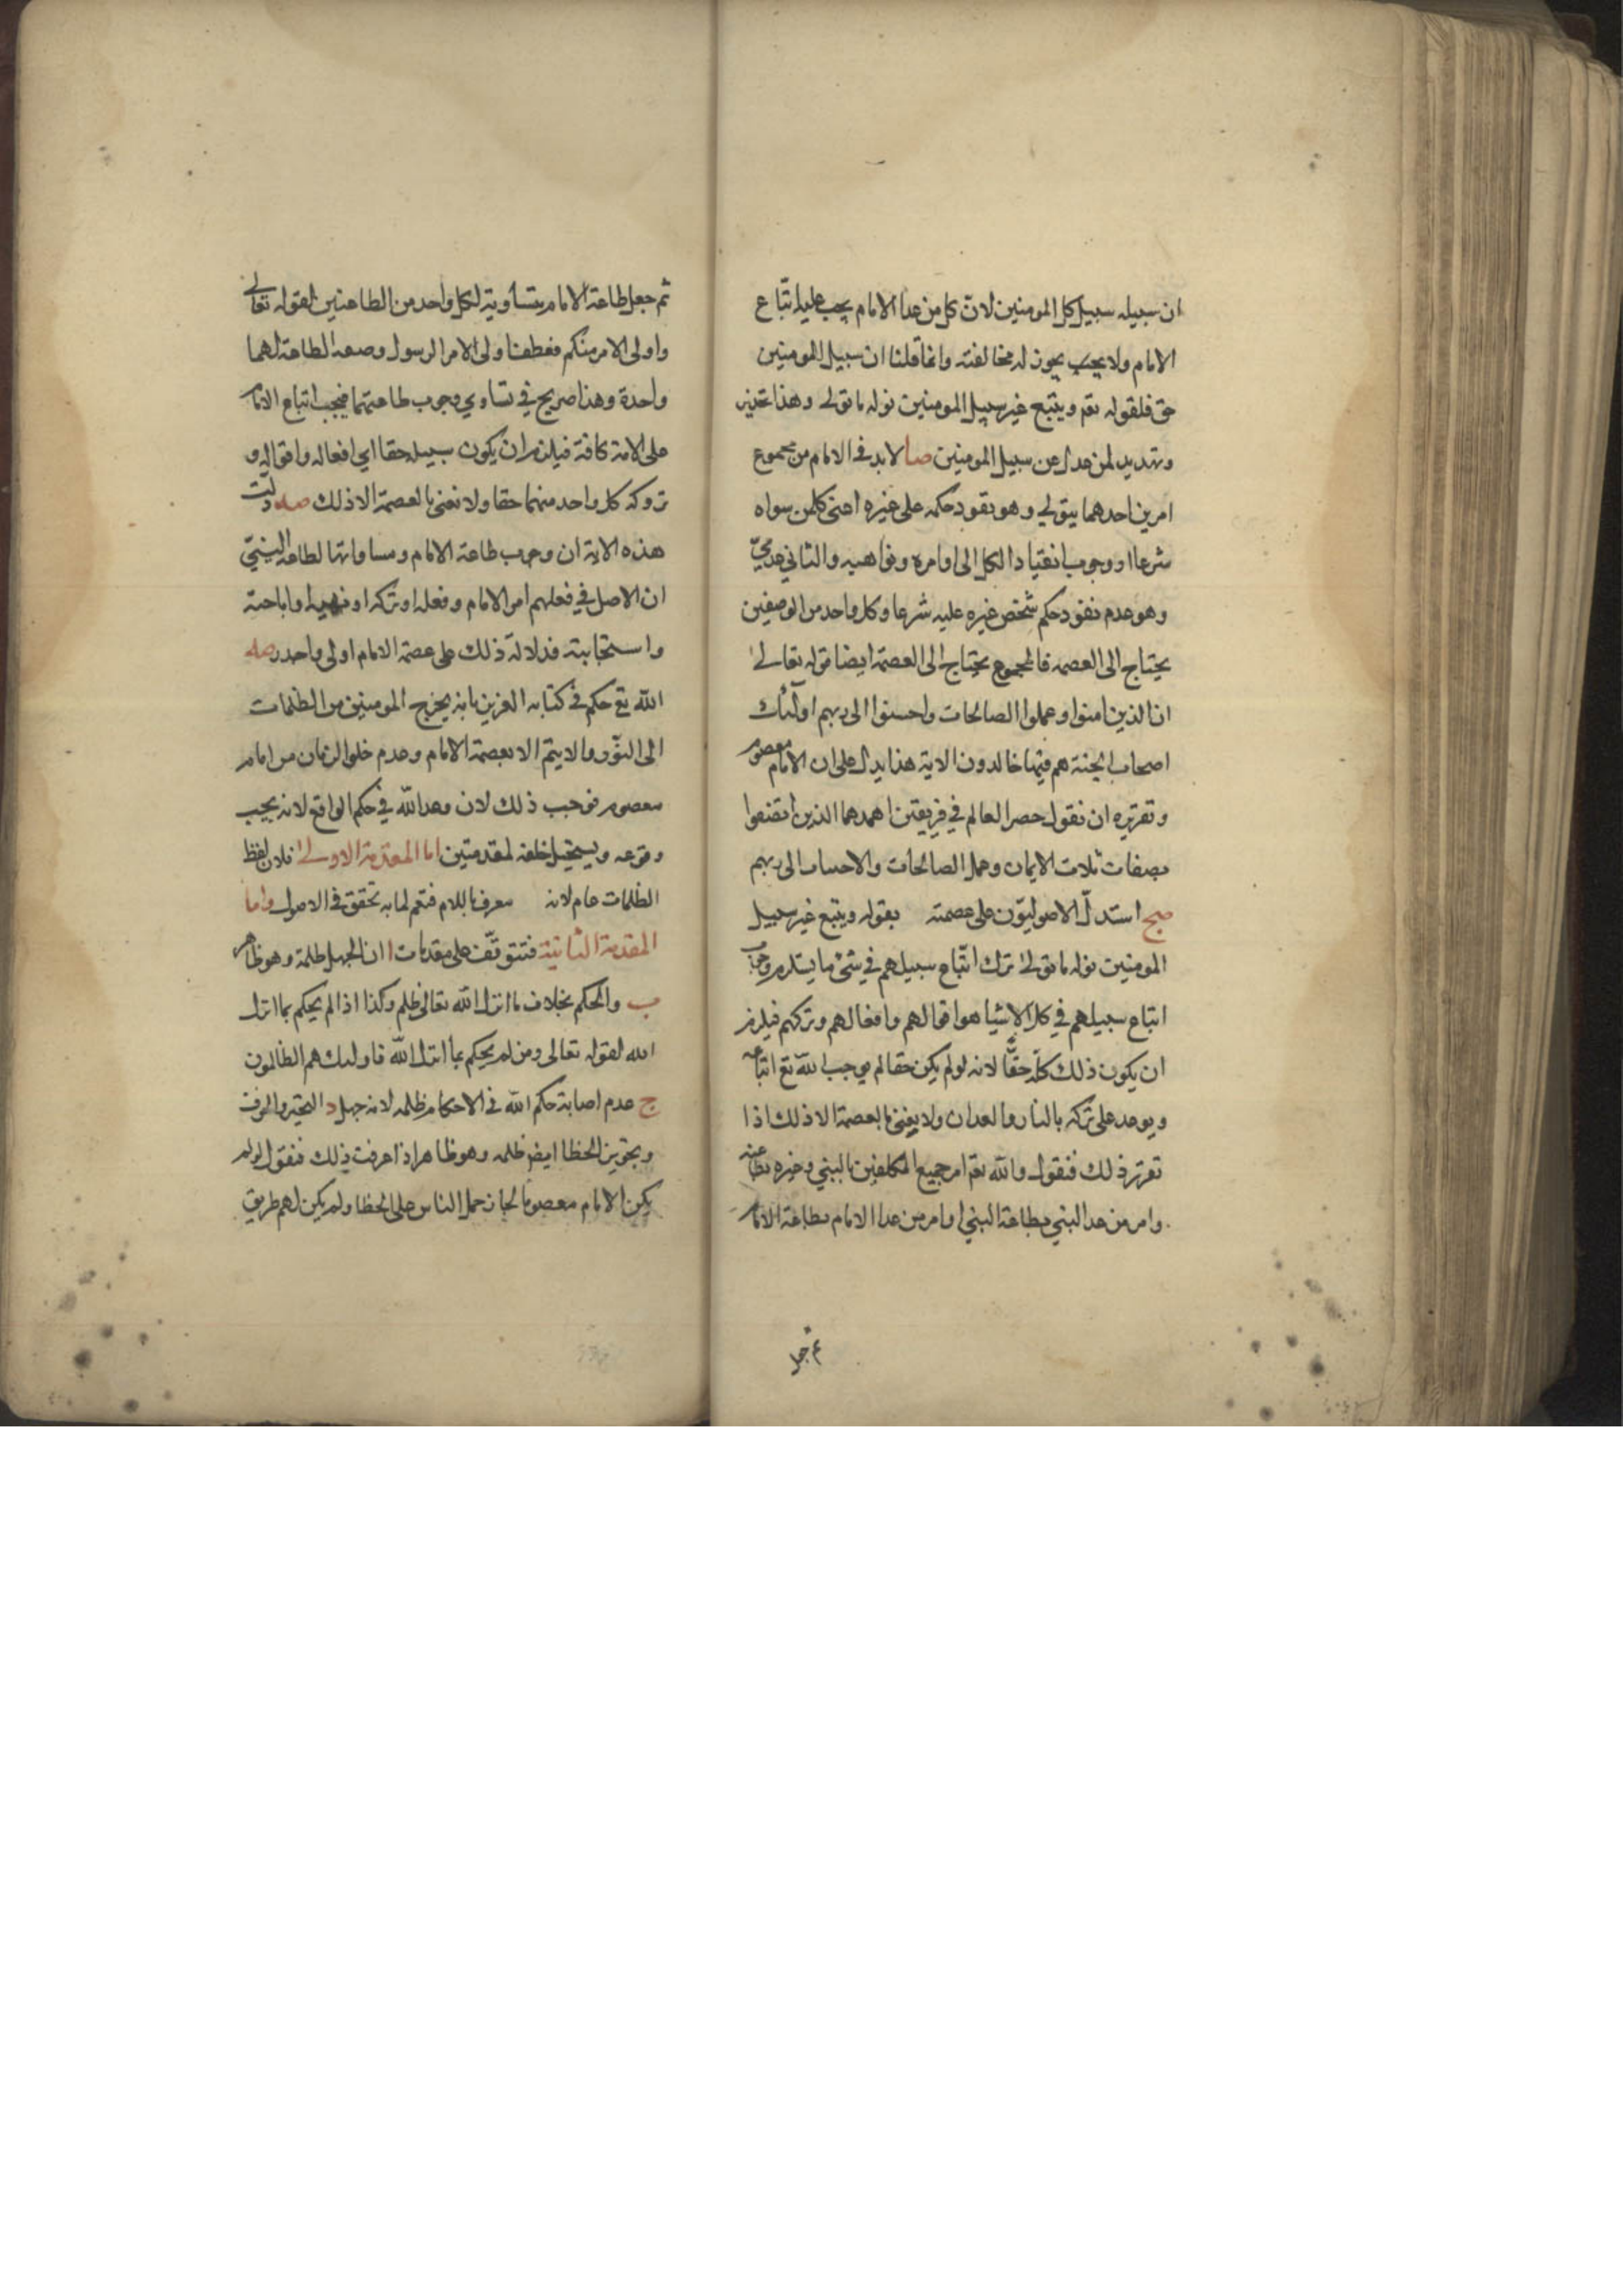 ان سبيله سبيل كل المومنين لان كل من عدا الامام يجب عليه اتباع
الامام ولا يجب يجوز له مخالفته وانما قلنا ان سبيل المومنين
حق فلقوله تعم ويتبع غير سبيل المومنين نوله ما تولى وهذا تحذير
وتهديد لمن عدل عن سبيل المومنين صا لابد في الامام من مجموع
امرين احدهما يتولى وهو نفود حكمه على غيره اعنى كلمن سواه
شرعا او وجوب انقياد الكل الى اوامره ونواهيه والثاني عدمي
وهو عدم نفود حكم شخص غيره عليه شرعا وكل واحد من الوصفين
يحتاج الى العصمه فالمجموع يحتاج الى العصمة ايضا قوله تعالى
ان الذين امنوا وعملوا الصالحات واحسنوا الى ربهم اولئك
اصحاب الجنة هم فيها خالدون الاية هذا يدل على ان الامام معصوم
وتقريره ان نقول حصر العالم في فريقين احدهما الذين اتصفوا
بصفات ثلاث الايمان وعمل الصالحات والاحسان الى ربهم
صج استدل الاصوليون على عصمته بقوله ويتبع غير سبيل
المومنين نوله ما تولى ترك اتباع سبيلهم في شئ ما يستلزم وجوب
اتباع سبيلهم في كل الاشيا هو اقوالهم وافعالهم وتركهم فيلزم
ان يكون ذلك كله حقا لانه لو لم يكن حقا لم يوجب الله تع اتباعه
ويوعد على تركه بالنار والعدان ولا يعنى بالعصمة الا ذلك اذا
تقرر ذلك فنقول والله تعم امر جميع المكلفين بالنبي وغيره بطاعته
وامر من عدا النبي بطاعة النبي وامر من عدا الامام بطاعة الامام
ثم جعل طاعة الامام متساوية لكل واحد من الطاعتين لقوله تعالى
واولى الامر منكم فعطف اولى الامر الرسول وصعه الطاعة لهما
واحدة وهذا صريح في تساوي وجوب طاعتهما فيجب اتباع الامام
على الامة كافة فيلزم ان يكون سبيله حقا اي افعاله واقواله و
تروكه كل واحد منهما حقا ولا نعنى بالعصمة الا ذلك صد دلت
هذه الاية ان وجوب طاعة الامام ومساواتها لطاعة النبي
ان الاصل في فعلهم امر الامام وفعله او تركه او نهيه او اباحته
واستحبابته فدلالة ذلك على عصمة الامام اولى واحدر صه
الله تع حكم في كتابه العزيز بانه يخرج المومنين من الظلمات
الى النور والا يتم الا بعصمة الامام وعدم خلو الزمان من امام
معصوم فوجب ذلك لان وعد الله في حكم الواقع لانه يجب
وقوعه ويستحيل خلفه لمقدمتين اما المقدمة الاولى فلان لفظ
الظلمات عام لانه معرف باللام فتعم لما به تحقق في الاصول واما
المقدمة الثانية فتتوقف على مقدمات ا ان الجهل ظلمة وهو ظاهر
ب والحكم بخلاف ما انزل الله تعالى ظلم وكذا اذا لم يحكم بما انزل
الله لقوله تعالى ومن لم يحكم بما انزل الله فاولئك هم الظالمون
ج عدم اصابة حكم الله في الاحكام ظلمه لانه جهل د التحير والوقف
وتجويز الخطا ايضا ظلمه وهو ظاهر اذا عرفت ذلك فنقول لو لم
يكن الامام معصوما لجاز حمل الناس على الخطا ولم يكن لهم طريق
ثم جعل